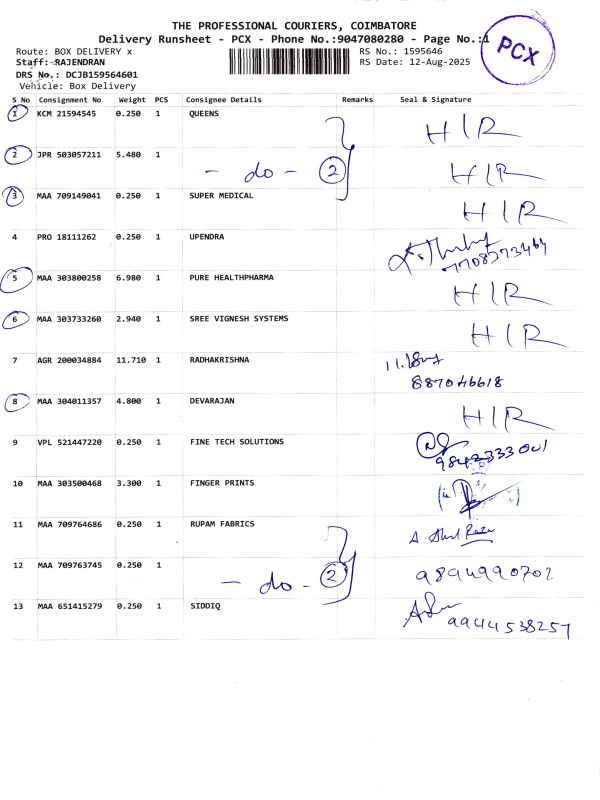 THE PROFESSIONAL COURIERS, COIMBATORE
Delivery Runsheet - PCX - Phone No.:9047080280 - Page No.:1
PCX
Route: BOX DELIVERY x RS No.: 1595646
Staff: RAJENDRAN RS Date: 12-Aug-2025
DRS No.: DCJB159564601
Vehicle: Box Delivery
S No Consignment No Weight PCS Consignee Details Remarks Seal & Signature
1 KCM 21594545 0.250 1 QUEENS HIR
2 JPR 503057211 5.480 1 - do - 2 HIR
3 MAA 709149041 0.250 1 SUPER MEDICAL HIR
4 PRO 18111262 0.250 1 UPENDRA 7708373464
5 MAA 303800258 6.980 1 PURE HEALTHPHARMA HIR
6 MAA 303733260 2.940 1 SREE VIGNESH SYSTEMS HIR
7 AGR 200034884 11.710 1 RADHAKRISHNA
887046618
8 MAA 304011357 4.800 1 DEVARAJAN HIR
9 VPL 521447220 0.250 1 FINE TECH SOLUTIONS
10 MAA 303500468 3.300 1 FINGER PRINTS
11 MAA 709764686 0.250 1 RUPAM FABRICS
12 MAA 709763745 0.250 1 - do - 2 9894990702
13 MAA 651415279 0.250 1 SIDDIQ 9944538257